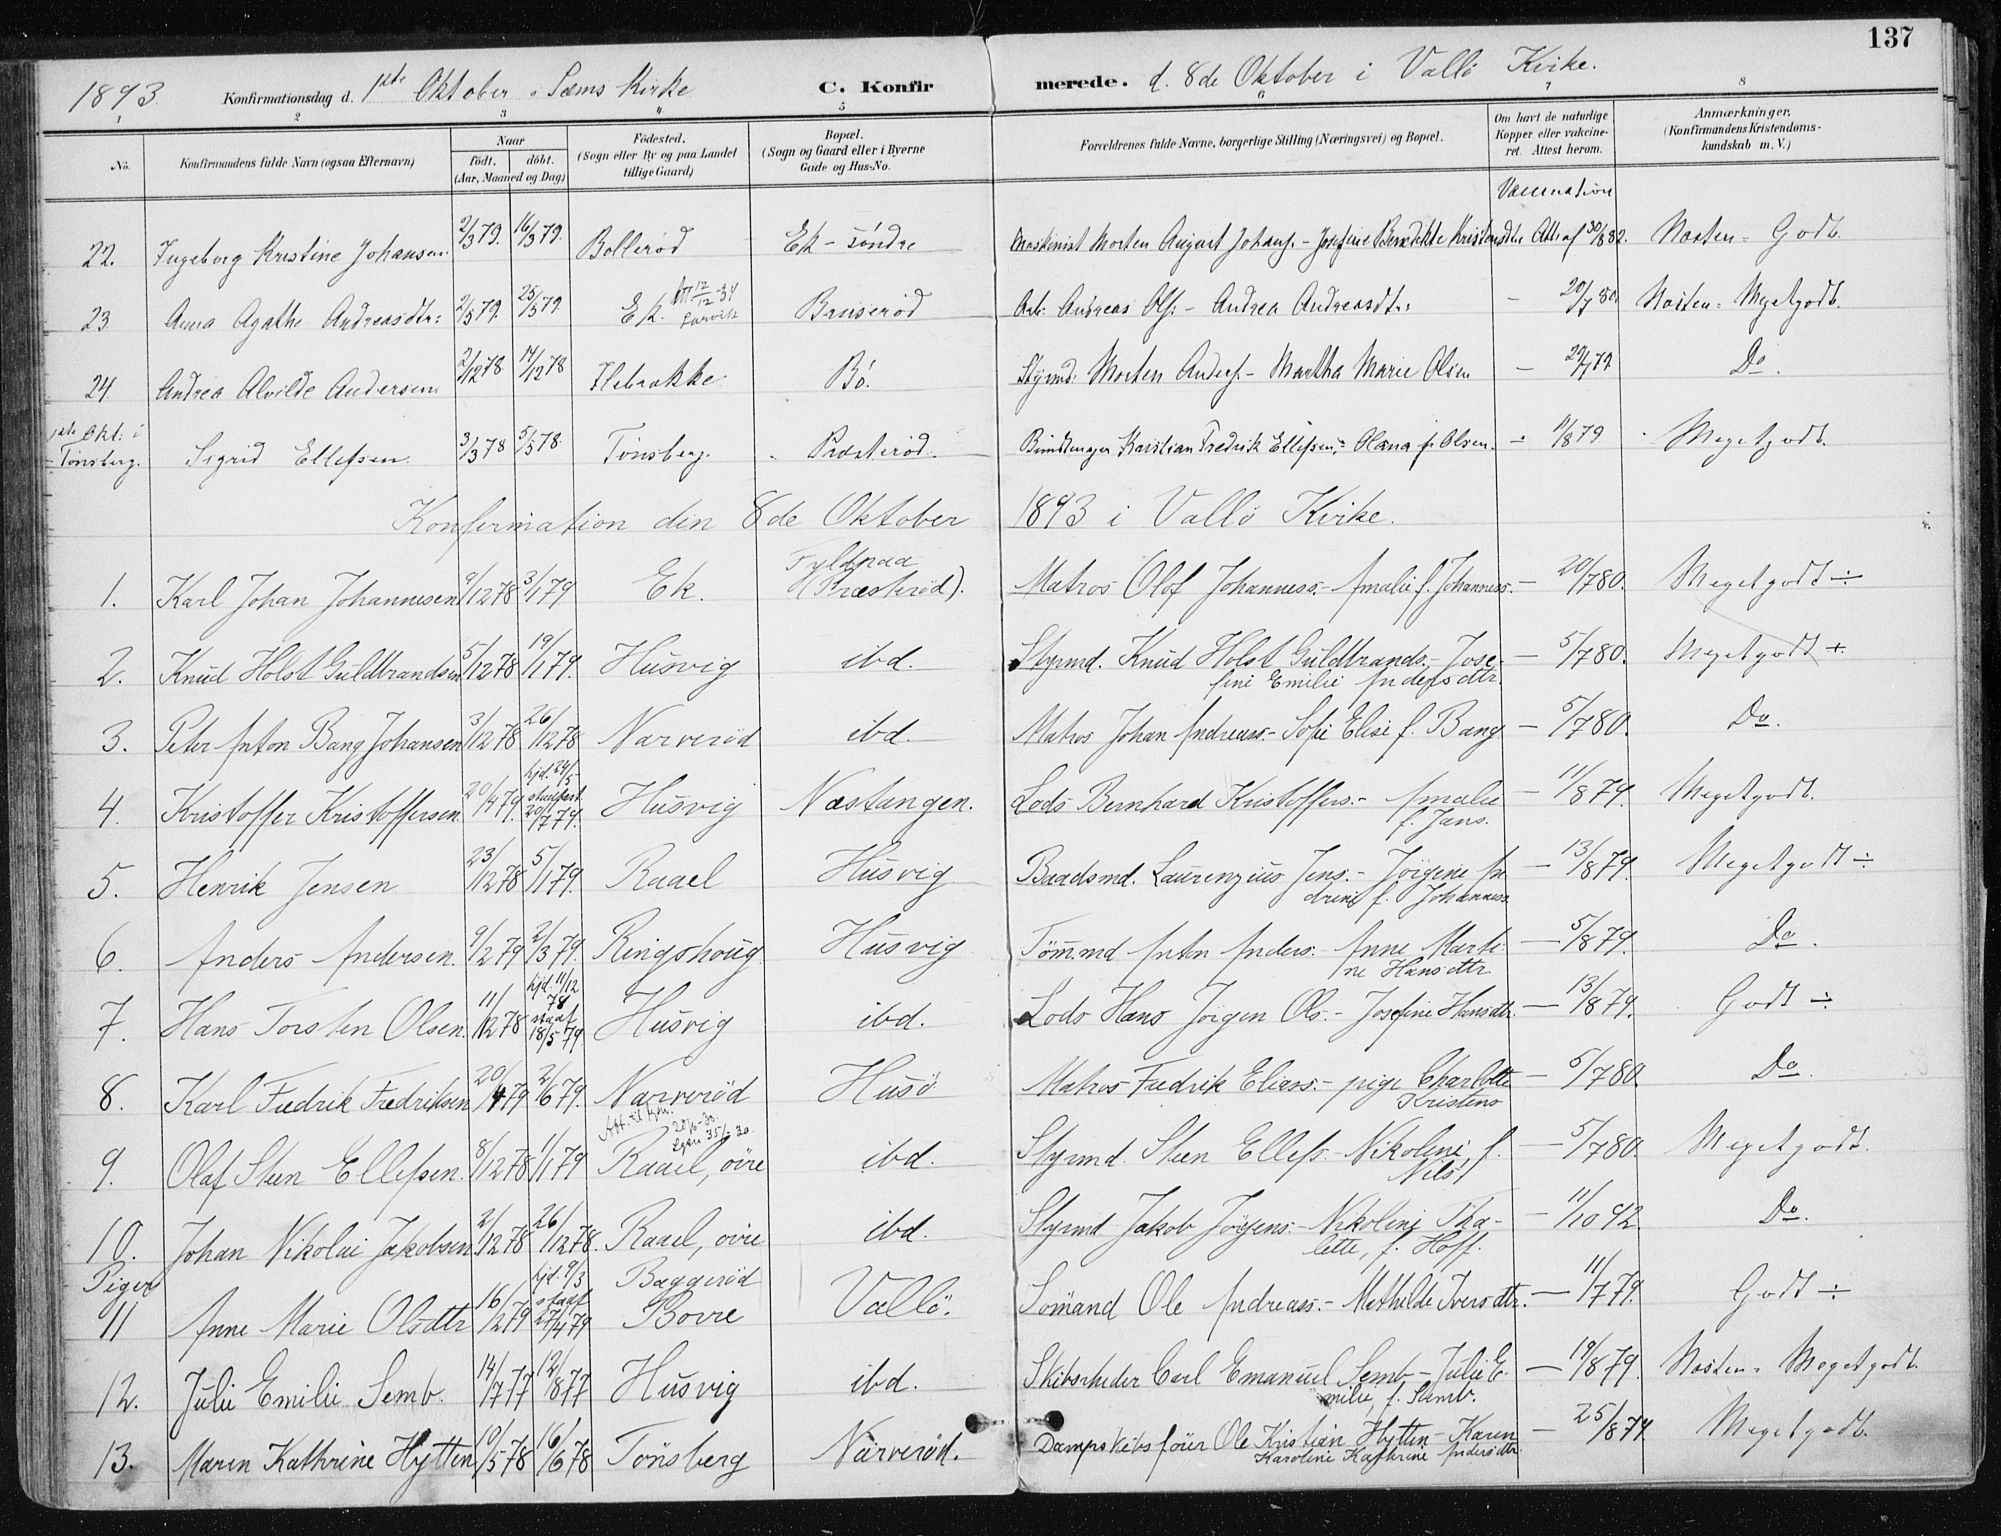 137
1893. Konfirmationsdag d. 1ste Oktober i Sems Kirke C. Konfirmerede. d. 8de Oktober i Vallö Kirke.
1 2 3 4 5 6 7 8
No. Konfirmandens fulde Navn (ogsaa Efternavn) Naar födt. döbt. (Aar, Maaned og Dag) Födested. (Sogn eller By og paa Landet tillige Gaard) Bopæl. (Sogn og Gaard eller i Byerne Gade og Hus-No. Forældrenes fulde Navne, borgerlige Stilling (Næringsvei) og Bopæl. Om havt de naturlige Kopper eller vakcineret. Attest herom. Anmærkninger. (Konfirmandens Kristendomskundskab m. V.)
Vaccination
22. Ingeborg Kristine Johansen 2/3 79. 16/3 79. Bollerød Ek - søndre Maskinist Morten August Johans. - Josefine Benedikte Kristensdtr. Att. af 30/8 82. Næsten - Godt.
23 Anna Agathe Andreasdtr: 2/5 79. 25/5 79. Ek. 12/12-34 Larvik Brüserød Arb. Andreas Ols. - Andrea Andreasdtr: - 20/7 80. Næsten - Megetgodt.
24. Andrea Alvilde Andersen 2/12 78 14/12 78 Ilebrække Bö. Styrmd. Morten Anders. - Martha Marie Olsen - 29/7 79 Do.
1ste Okt. i Tönsberg. Sigrid Ellefsen 3/3 78 5/5 78. Tönsberg. Præsterød. Bundtmager Karstian Fredrik Ellefsen, - Olana f. Olsen. - 11/8 79. Megetgodt.
Konfirmation den 8de Oktober 1893 i Vallö Kirke.
1. Karl Johan Johannesen 9/12 78 3/1 79 Ek. Fyldpaa (Præsterød). Matros Olof Johanness. - Amalie f. Johanness. - 20/7 80. Megetgodt ÷
2. Knud Holst Guldbrandsen 5/12 78 19/1 79. Husvig ibd. Styrmd. Knud Holst Guldbrands. - Josefine Emilie Andersdtr. - 5/7 80. Megetgodt +.
3. Peter Anton Bang Johansen 3/12 78 26/12 78 Narverød ibd. Matros Johan Andreass. - Sofie Elise f. Bang - 5/7 80. Do.
4. Kristoffer Kristoffersen. 20/4 79. hjd. 24/5 stadfæst. 20/7 79. Husvig Næstangen. Lods Bernhard Kristoffers. - Amalie f. Jans. - 11/8 79. Megetgodt.
5. Henrik Jensen 23/12 78 5/1 79. Raael Husvig Baadsmd. Laurenzius Jens. - Jörgine Andrine f. Johanness. - 13/8 79. Megetgodt ÷
6. Anders Andersen. 9/2 79 2/3 79. Ringshoug Husvig Tömmd Anton Anders. - Anne Martine Hansdtr. - 5/8 79. Do.
7. Hans Torsten Olsen. 11/12 78 hjd. 11/12 78 staaf 18/5 79. Husvig ibd. Lods Hans Jörgen Ols. - Josefine Hansdtr. - 13/8 79. Godt ÷
8. Karl Fredrik Fredriksen 20/4 79 2/6 79. Narverød Husö Matros Fredrik Eliass. - pige Charlotte Kristens - 5/7 80. Do.
9. Olaf Steen Ellefsen. 8/12 78 1/1 79 Att. til 20/6-30. 35/-30. Raael, övre ibd. Styrmd. Steen Ellefs. - Nikoline, f. Nils - 5/7 80. Megetgodt.
10. Johan Nikolai Jakobsen 2/12 78 26/12 78. Raael, övre ibd. Styrmd Jakob Jörgens. - Nikoline Thalette, f. Hoff. - 11/10 92. Do.
Piger
11 Anne Marie Olsdtr 16/2 79 hjd. 9/3 staaf 27/4 79 Baggerød Bovre Vallö. Sömand Ole Andreass. - Mathilde Iversdtr. - 11/7 79. Godt ÷
12. Julie Emilie Semb. 14/7 77 12/8 77 Husvig ibd. Skibsrheder Carl Emanuel Semb - Julie Emilie, f. Semb. - 19/8 79. Næsten - Megetgodt.
13. Maren Kathrine Hytten 10/5 78 16/6 78 Tönsberg Narverød. Dampskibsförer Ole Kristian Hytten - Karen Karoline Kathrine Andersdtr. - 25/8 79. Megetgodt.